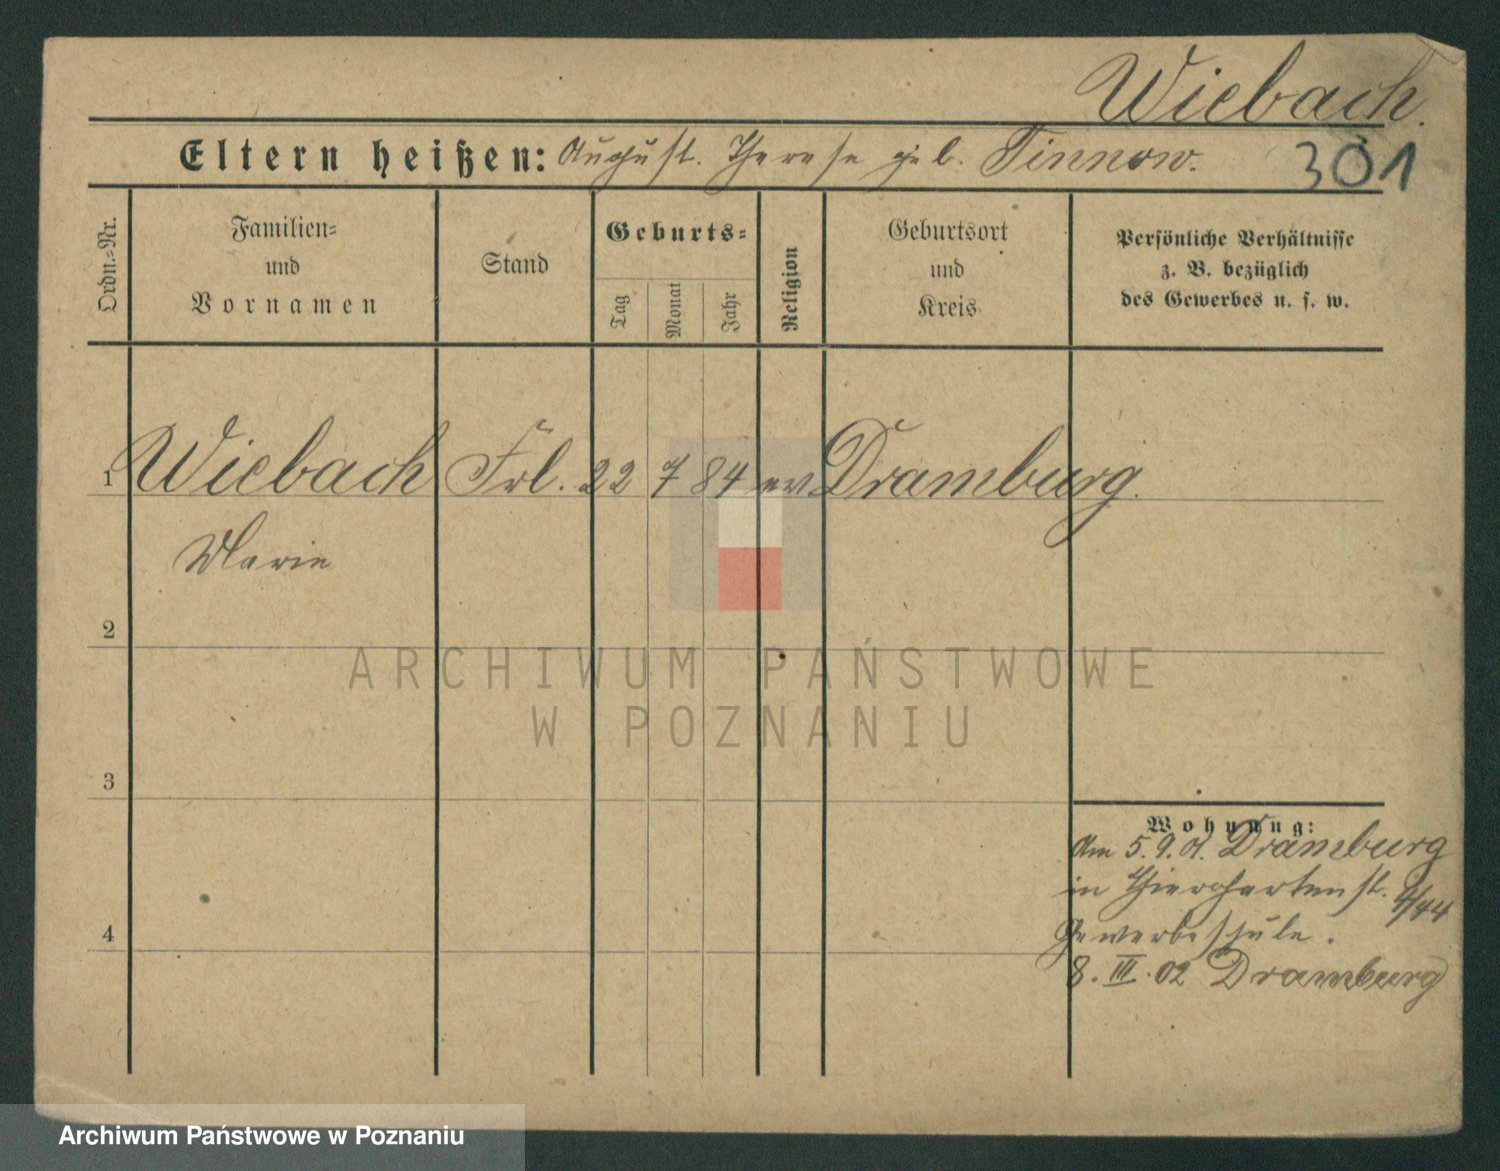 Wiebach.
Eltern heißen: August. Therese geb. Tinnow.
301
Ordn.-Nr.
Familien- und Vornamen
Stand
Geburts-
Tag
Monat
Jahr
Religion
Geburtsort und Kreis
Persönliche Verhältnisse
z. B. bezüglich
des Gewerbes u. s. w.
1 Wiebach Frl. 22 7 84 ev Dramburg.
Marie
2
3
4
Wohnung:
Am 5.9.01. Dramburg
in Thiergartenst. 4/44
Gewerbeschule.
8. III. 02 Dramburg
ARCHIWUM PAŃSTWOWE
W POZNANIU
Archiwum Państwowe w Poznaniu